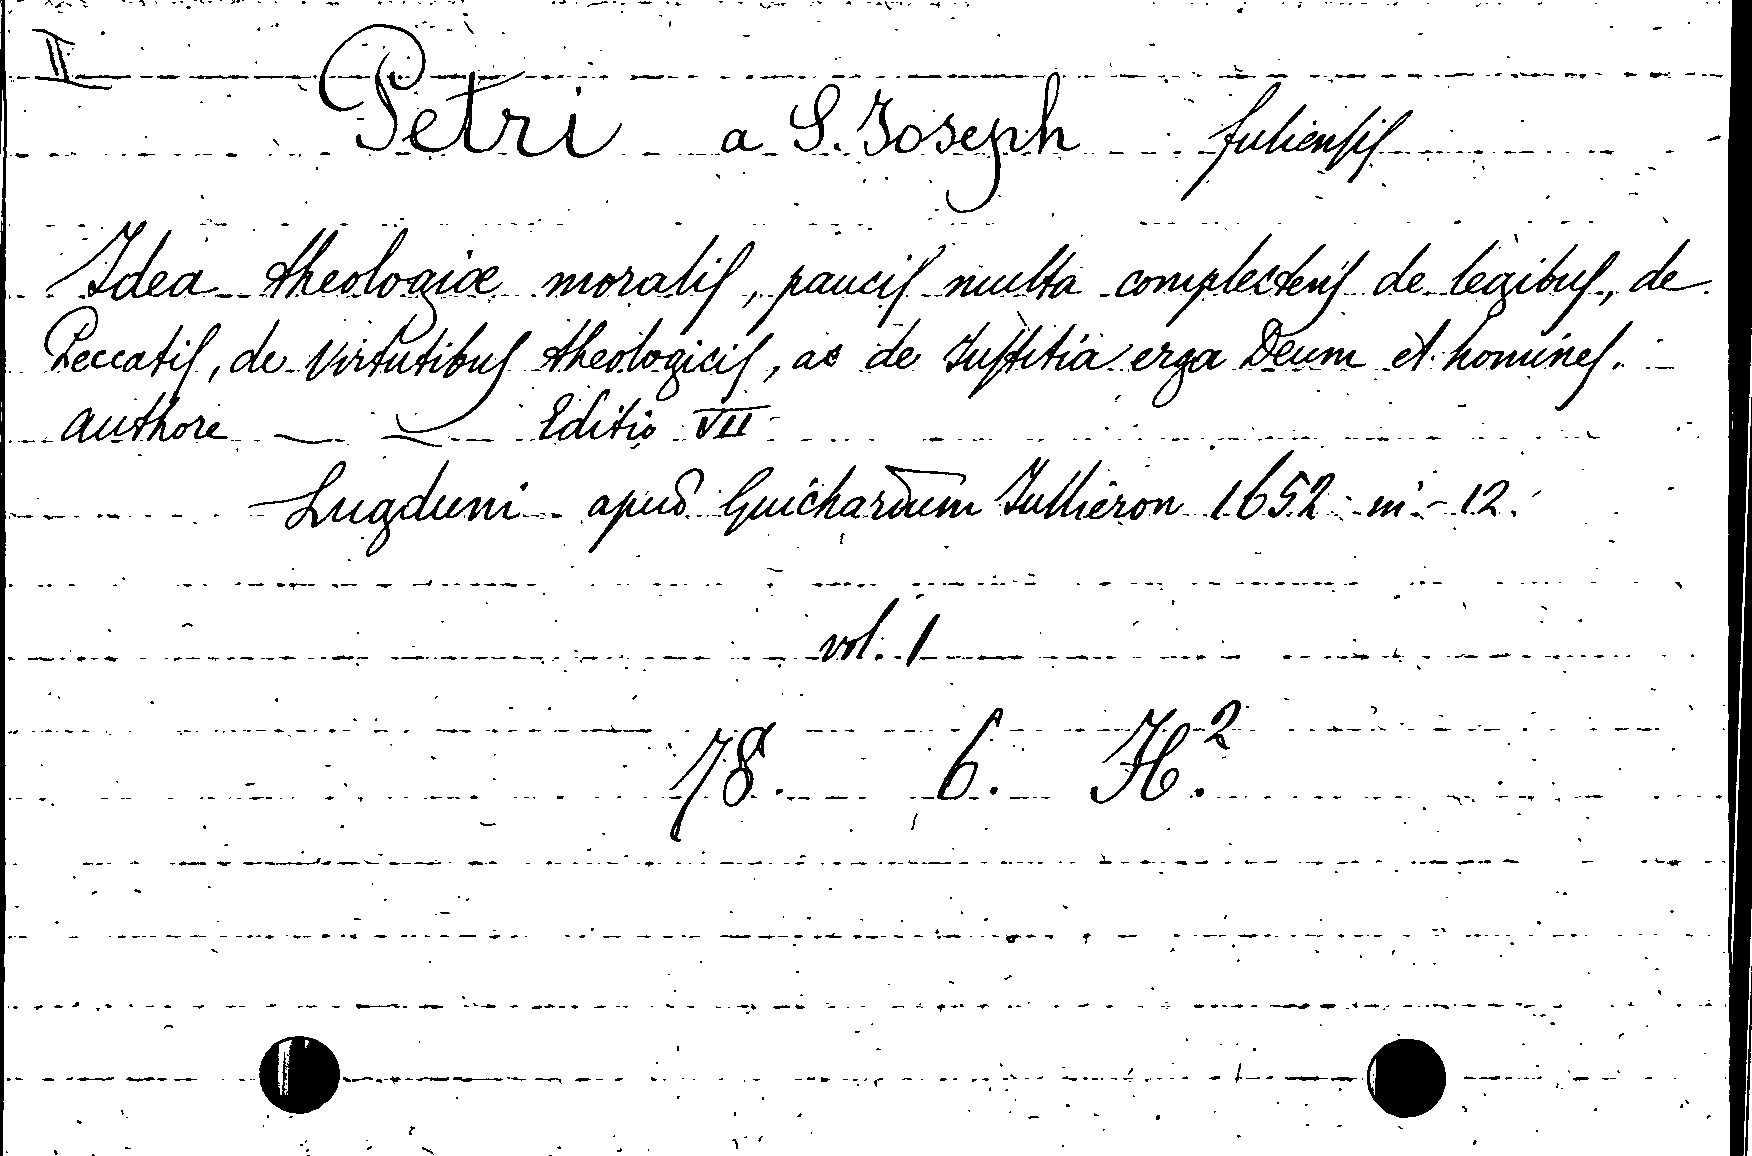 II
Petri a S. Joseph fuliensis
Idea theologiæ moralis, paucis multa complectens de legibus, de
Peccatis, de virtutibus theologicis, ac de Justitia erga Deum et homines.
authore — — Editio VII
Lugduni apud Guichardum Jullieron 1652 in-12.
vol. 1
78. 6. H.²